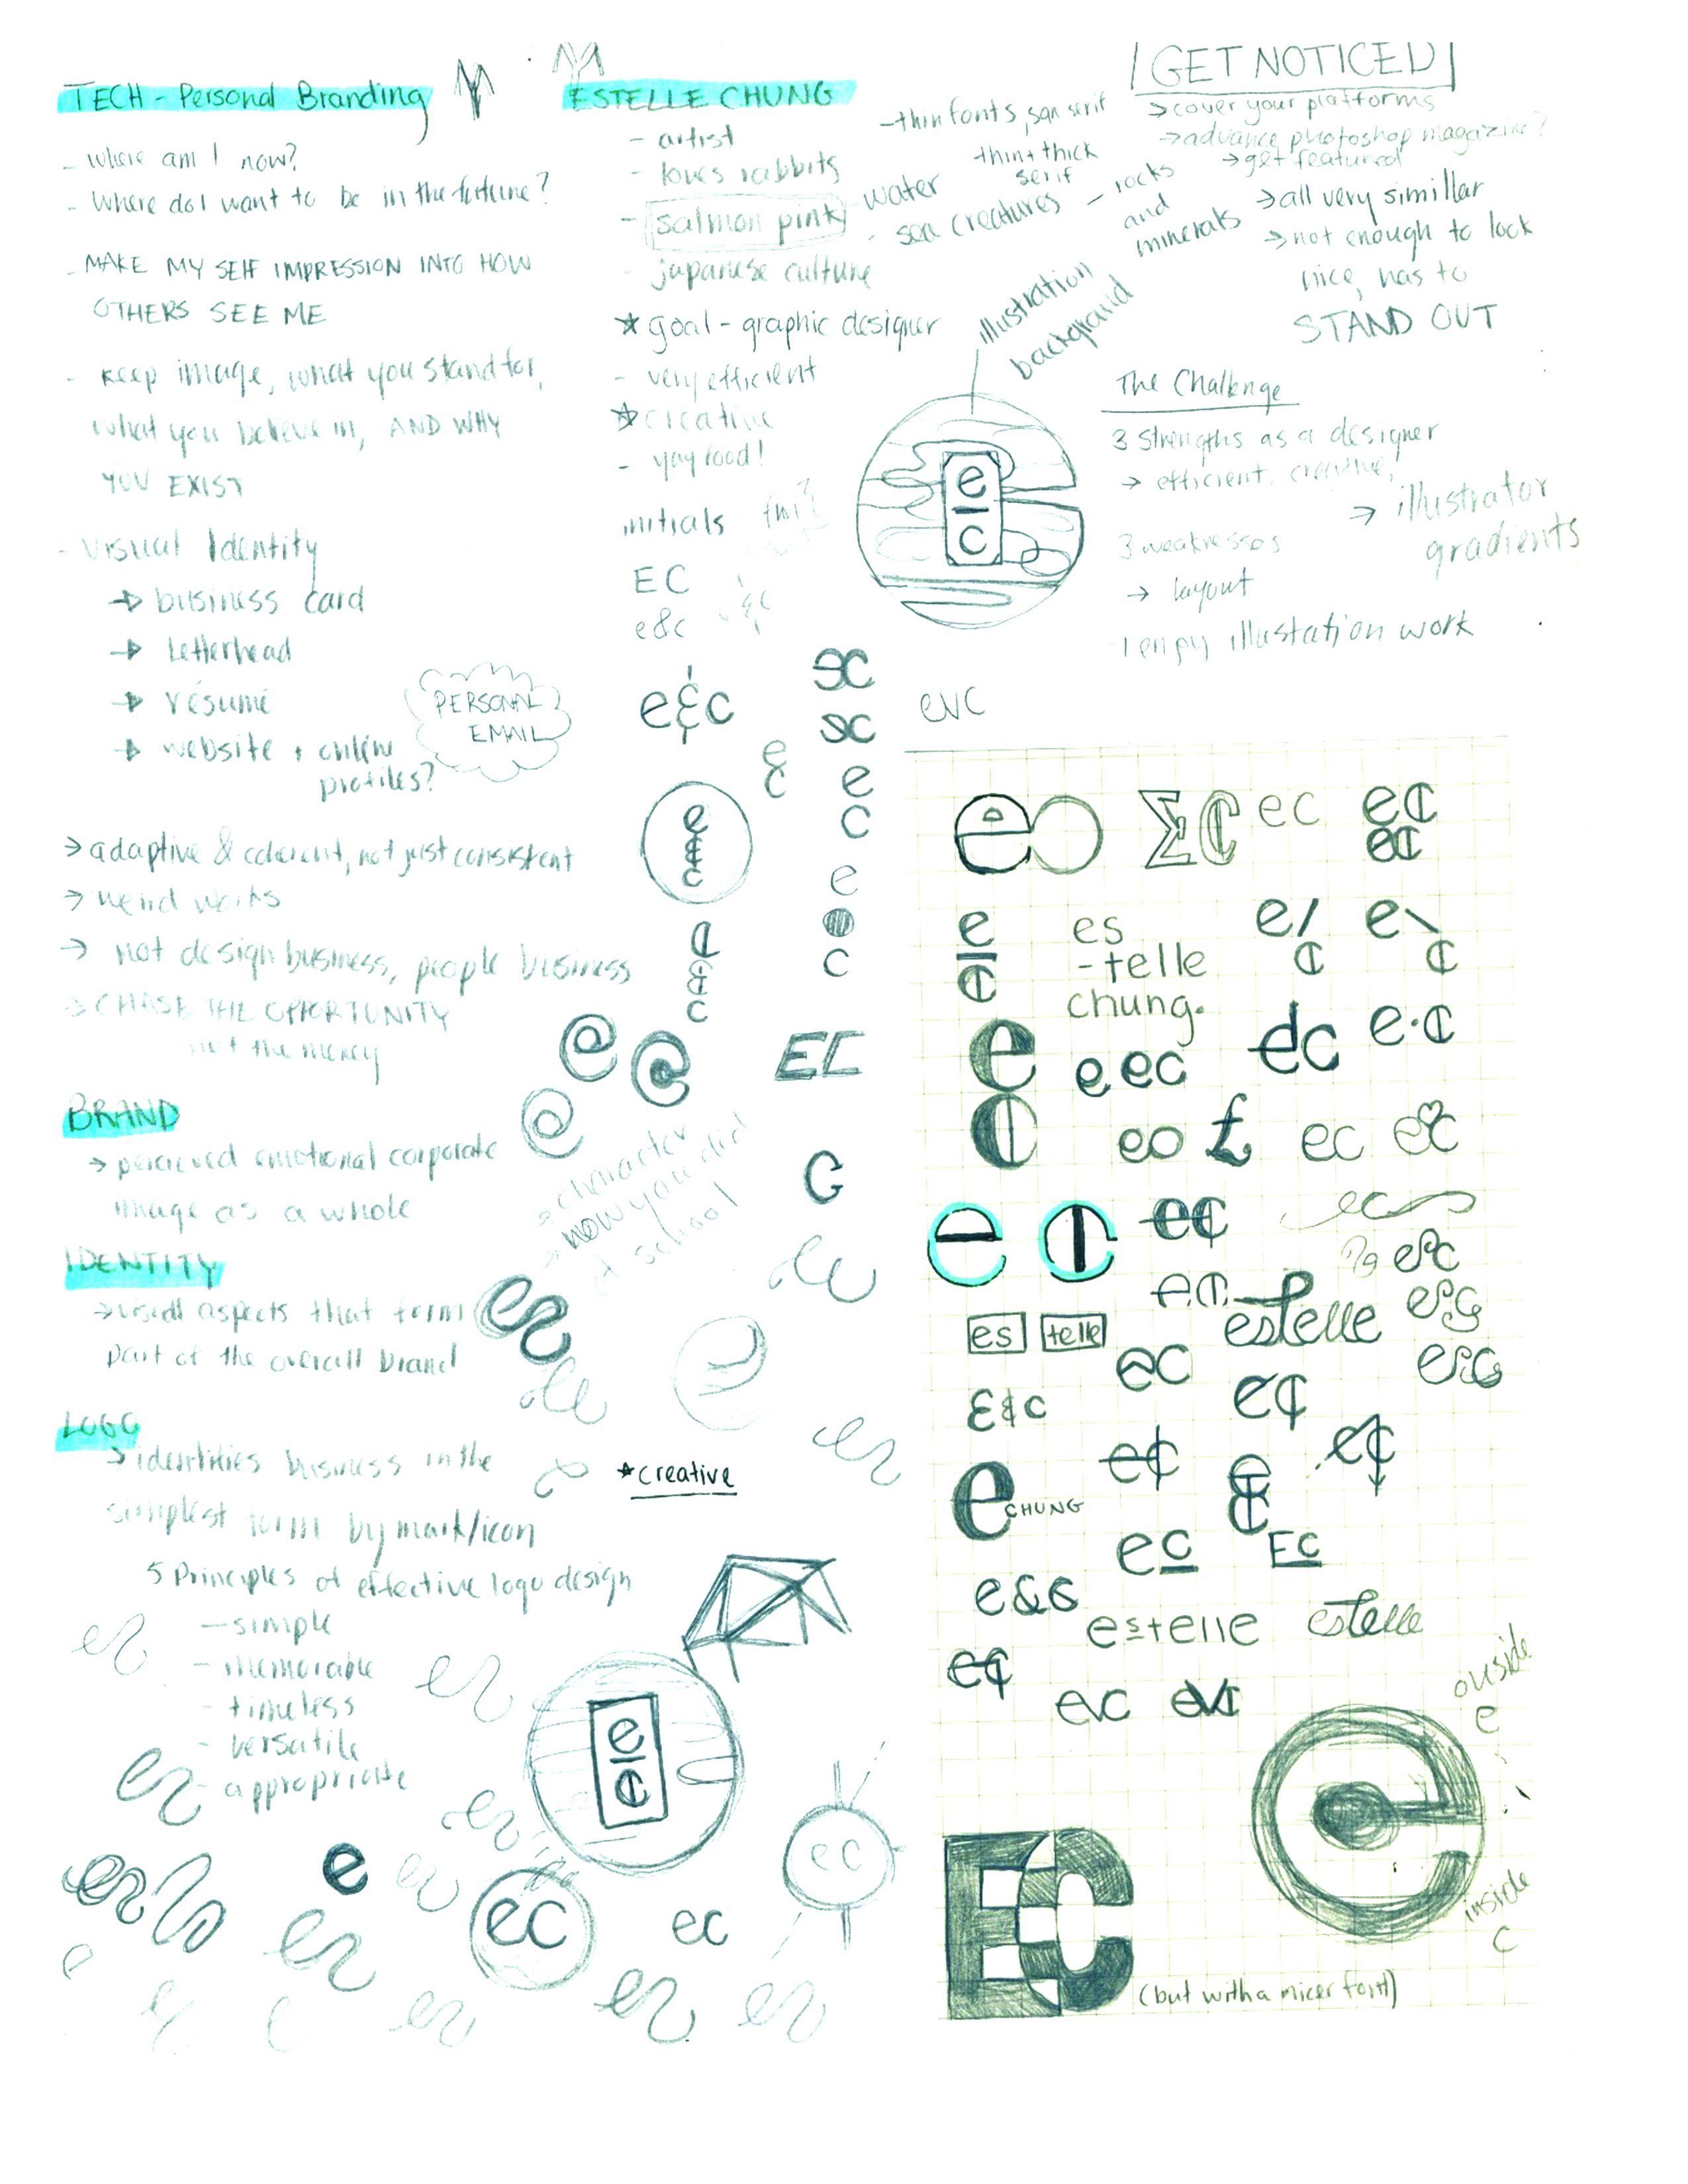 TECH - Personal Branding
- Where am I now?
- Where do I want to be in the forture?
- MAKE MY SELF IMPRESSION INTO HOW
OTHERS SEE ME
- keep image, what you stand for,
what you believe in, AND WHY
YOU EXIST
- Visual Identity
→ business card
→ letterhead
→ résumé
→ website + online
profiles?
PERSONAL
EMAIL
→ adaptive & coherent, not just consistent
→ weird works
→ not design business, people business
→ CHASE THE OPPORTUNITY
not the money
BRAND
→ percieved emotional corporate
image as a whole
IDENTITY
→ visual aspects that form
part of the overall brand
LOGO
→ identifies business in the
simplest form by mark/icon
5 Principles of effective logo design
- simple
- memorable
- timeless
- versatile
- appropriate
ESTELLE CHUNG
- artist
- loves rabbits
- salmon pink
- japanese culture
★ goal - graphic designer
- very efficient
★ creative
- yay food!
- thin fonts, san serif
thin + thick
serif
- water
- sea creatures
- rocks
and
minerals
illustration
background
e
c
initials
EC
e&c
e&c
evc
→ character
→ how you did
at school
★ creative
GET NOTICED
→ cover your platforms
→ advance photoshop magazine?
→ get featured
→ all very simillar
→ not enough to look
nice, has to
STAND OUT
The Challenge
3 strengths as a designer
→ efficient, creative,
→ illustrator
gradients
3 weaknesses
→ layout
I enjoy illustation work
EC
ec
es
-telle
chung.
e c
ec
es telle
estelle
ec
e CHUNG
ec
EC
e&c
estelle estelle
evc
ouside
e
inside
c
e
ec
ec
ec
EC
(but with a nicer font)